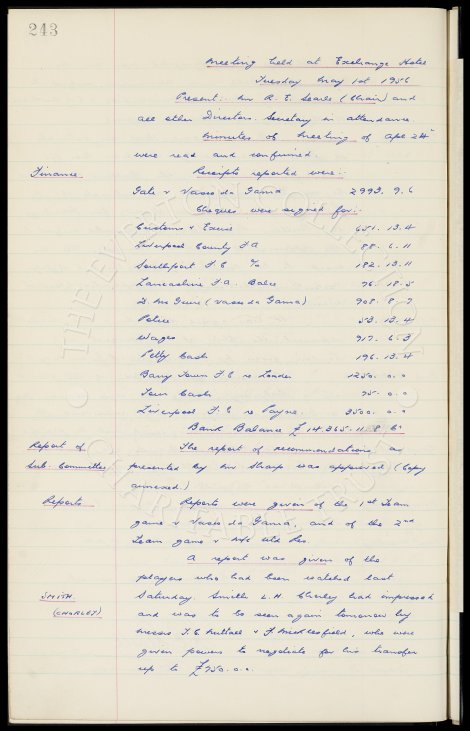 243
Meeting held at Exchange Hotel
Tuesday May 1st 1956
Present:- Mr R. E. Searle (Chair) and
all other Directors. Secretary in attendance
Minutes of Meeting of Apl 24th
were read and confirmed.
Finance Receipts reported were:-
Gate v Vasco da Gama 2993. 9. 6
Cheques were signed for:-
Customs & Excise 651. 13. 4
Liverpool County F.A. 88. 6. 11
Southport F.C. % 182. 13. 11
Lancashire F.A. Balce 76. 18. 5
D. (Vasco da Gama) 908. 8. 7
Police 53. 13. 4
Wages 917. 6. 3
Petty Cash 196. 13. 4
Town F.C. re 1250. 0. 0
Town Cash 75. 0. 0
Liverpool F.C. re Payne. 3500. 0. 0
Bank Balance £14,365. 11. 8
Report of The report of recommendations, as
Sub. Committee presented by Mr Sharp was approved (Copy
annexed)
Reports Reports were given of the 1st Team
game v Vasco da Gama, and of the 2nd
Team game v M/c Utd Res.
A report was given of the
players who had been watched last
SMITH. Saturday. Smith L.H. Chorley had impressed
(CHORLEY) and was to be seen again tomorrow by
Messrs T. C. Nuttall & F. Micklesfield, who were
given powers to negotiate for his transfer
up to £750. 0. 0.
THE EVERTON COLLECTION
CHARITABLE TRUST